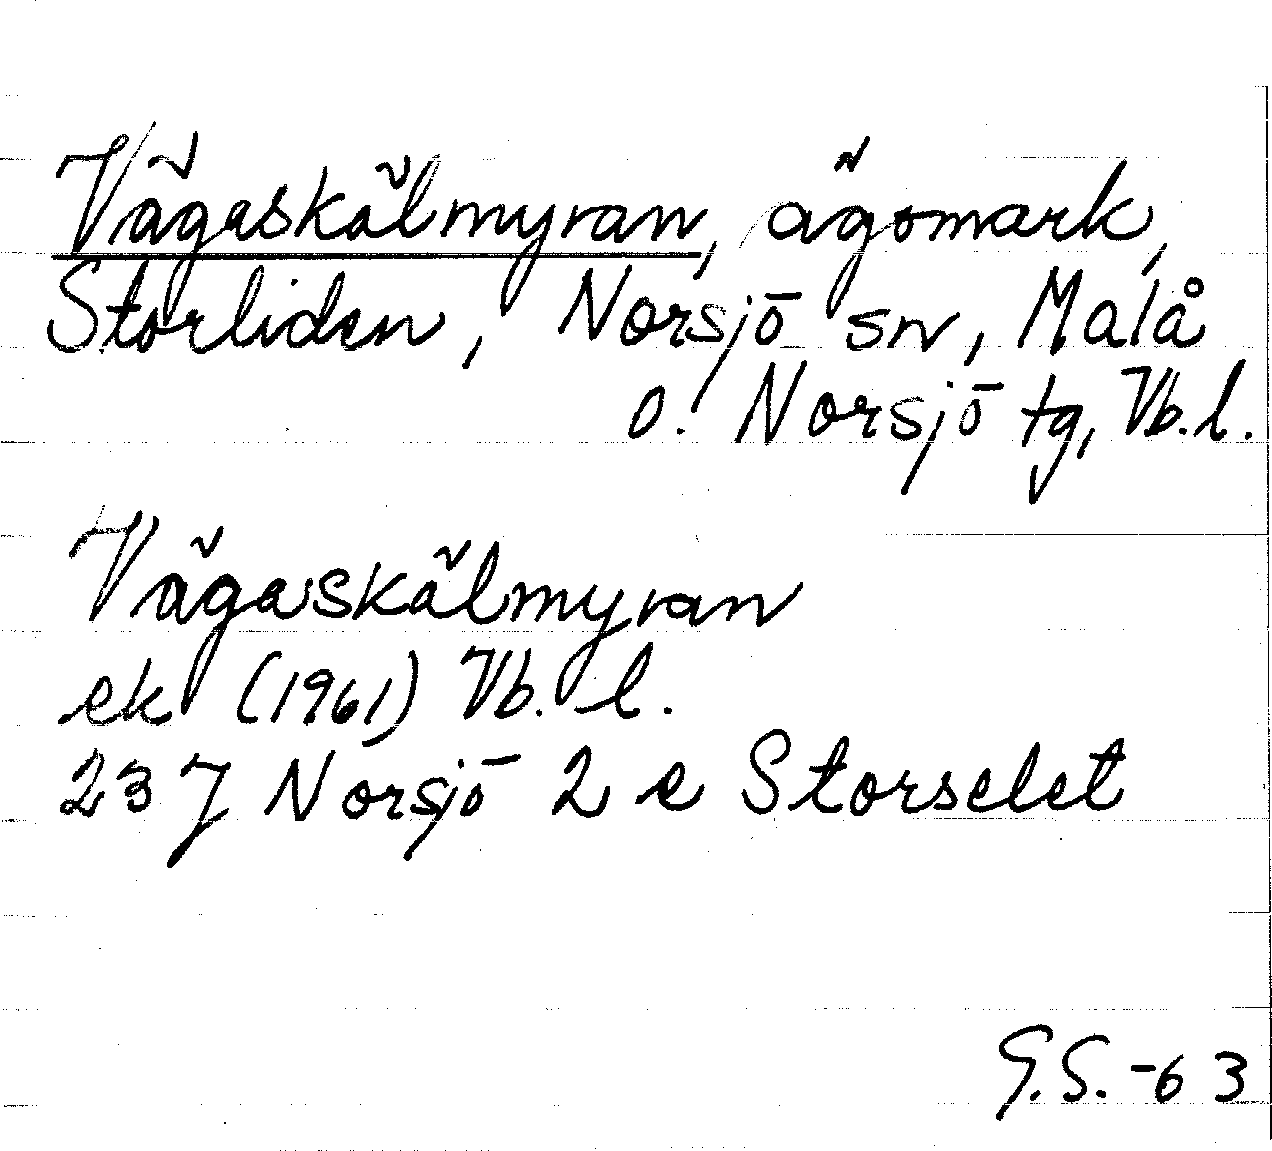 Vägaskälmyran, ägomark,
Storliden, Norsjö sn, Malå
o. Norsjö tg, Vb. l.
Vägaskälmyran
ek (1961) Vb. l.
23 J Norsjö 2 e Storselet
G.S. -63